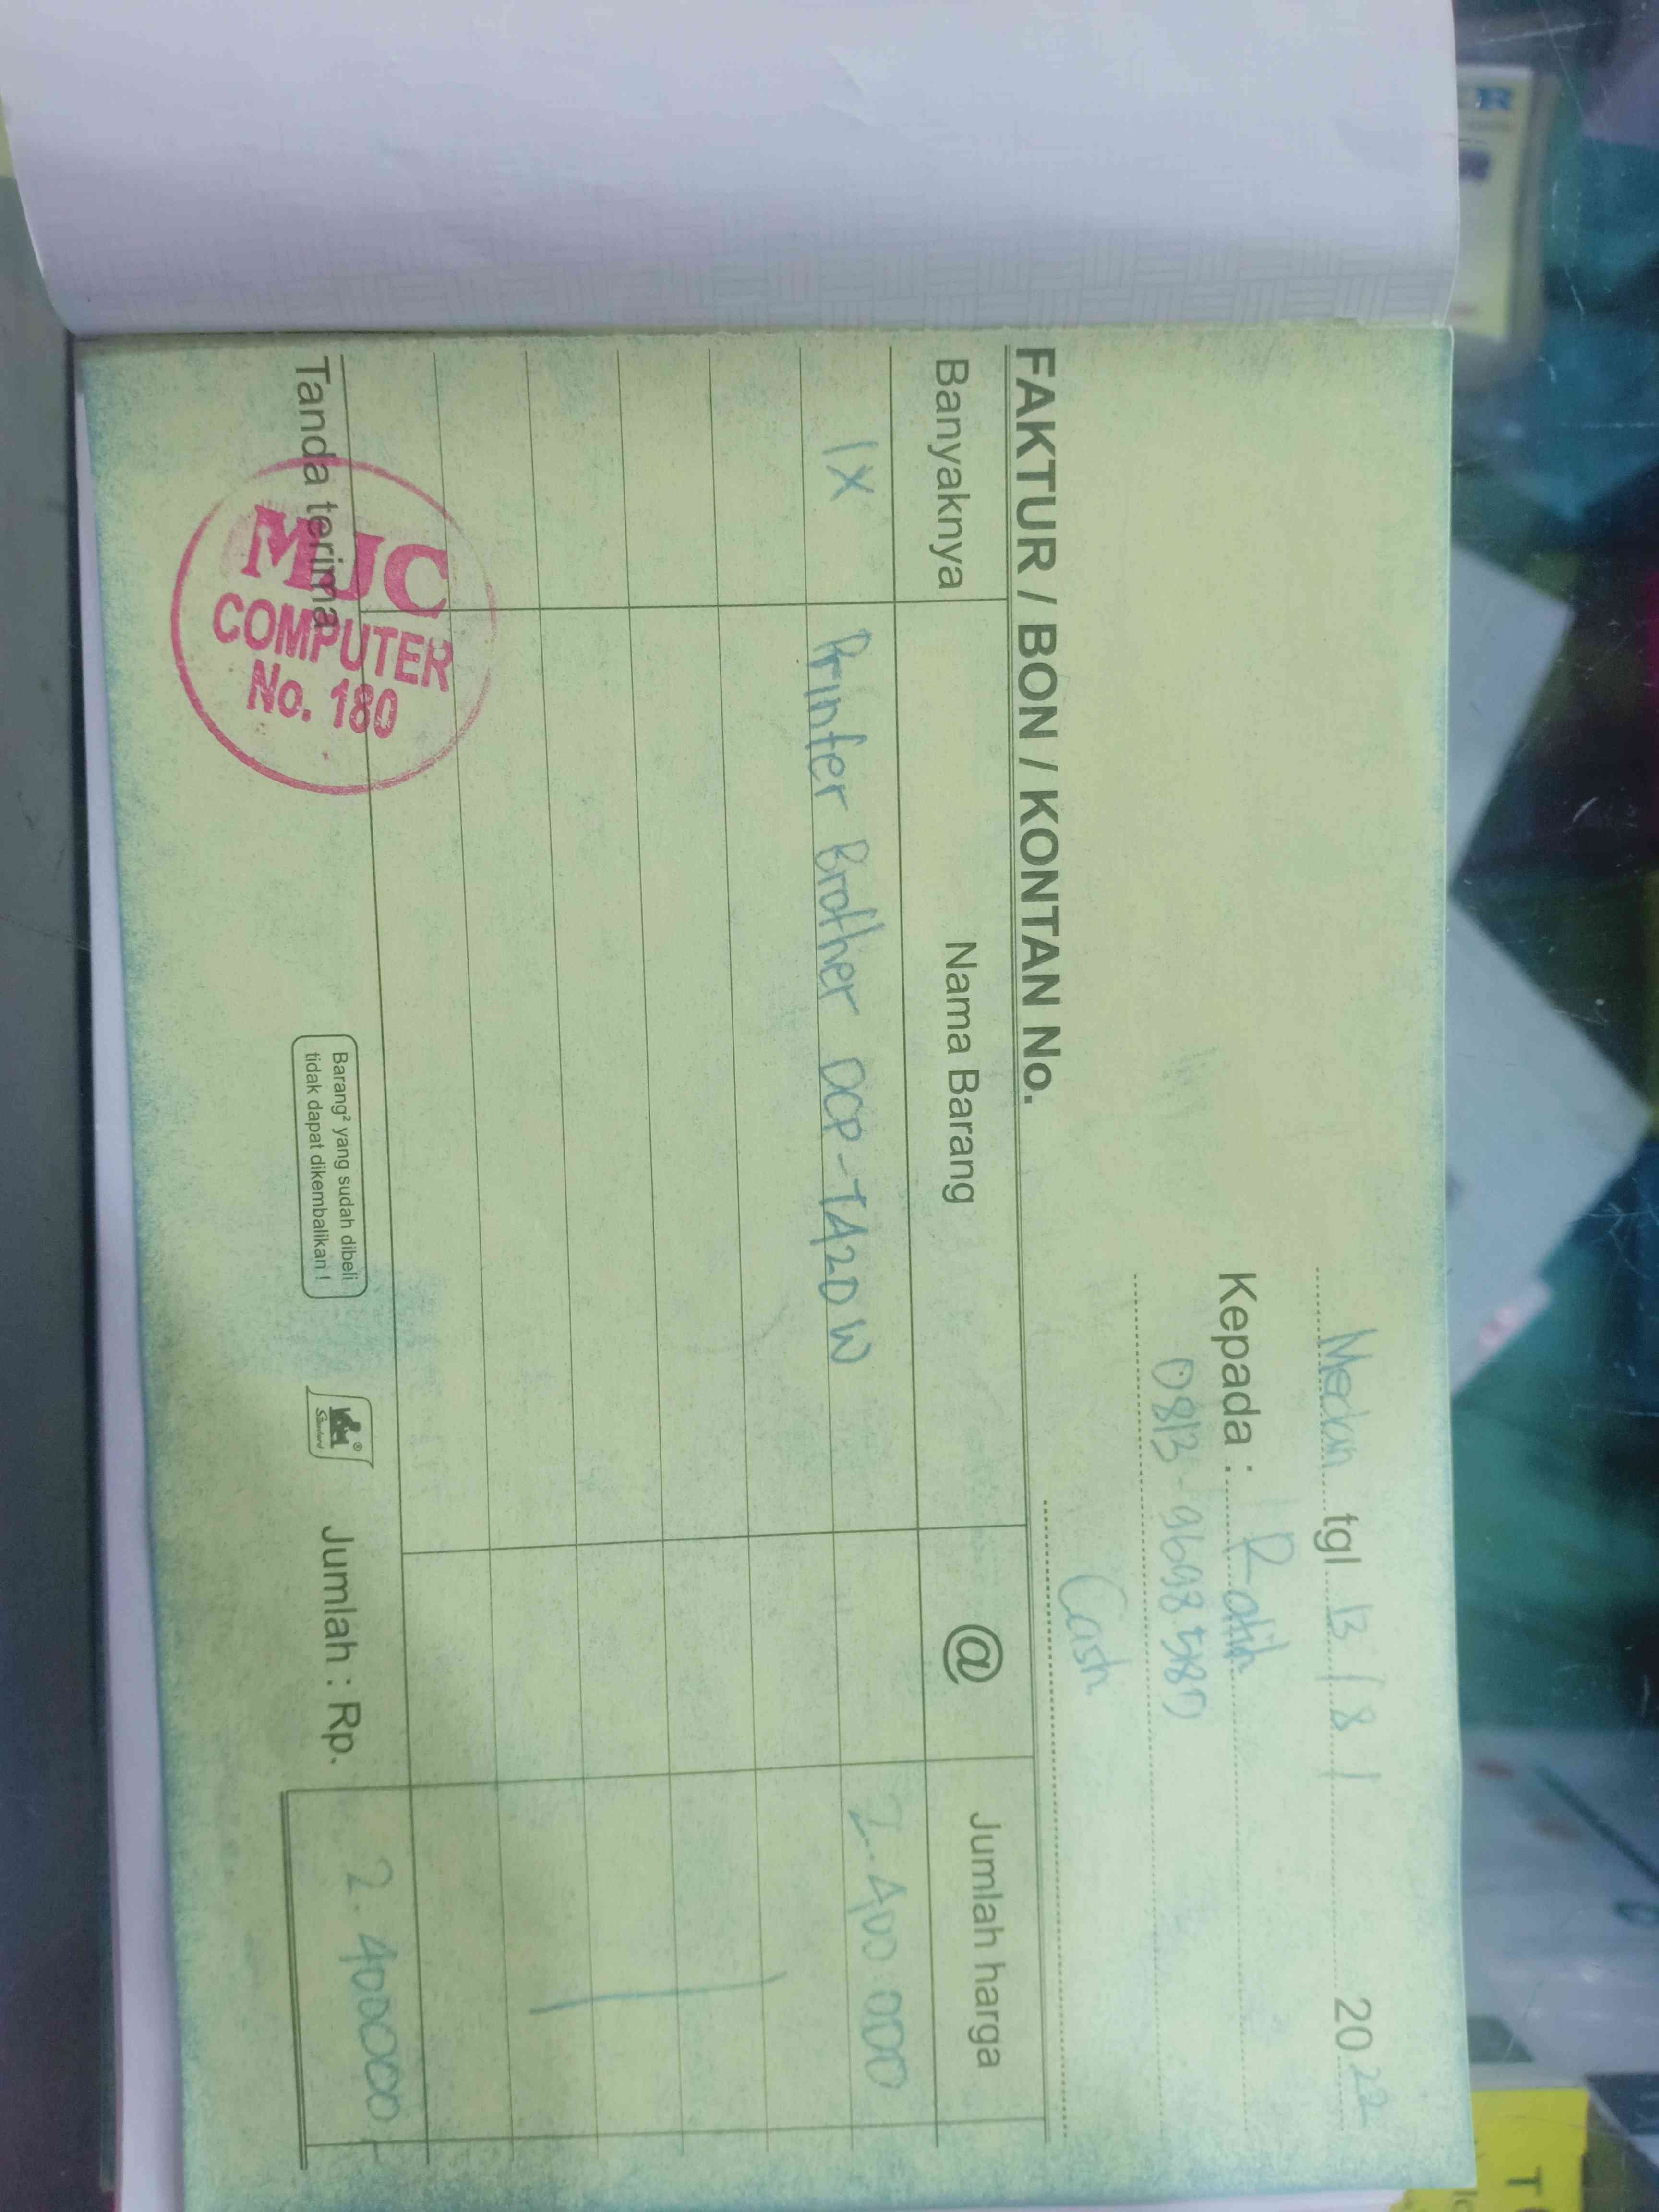 Medan tgl 13 / 8 / 2022
Kepada : Ratih
0813-96985180
Cash
FAKTUR / BON / KONTAN No.
Banyaknya Nama Barang @ Jumlah harga
1X Printer Brother DCP-T420W 2.400.000
Tanda terima
MJC
COMPUTER
No. 180
Barang² yang sudah dibeli
tidak dapat dikembalikan !
Jumlah : Rp. 2.400000,-